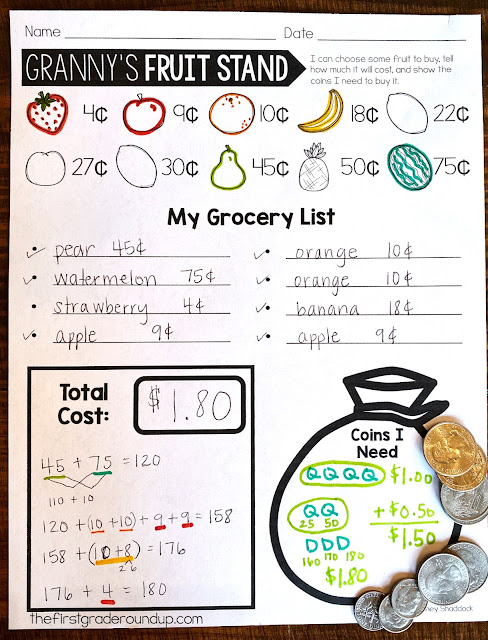 Name Date
GRANNY'S FRUIT STAND
I can choose some fruit to buy, tell
how much it will cost, and show the
coins I need to buy it.
4¢ 9¢ 10¢ 18¢ 22¢
27¢ 30¢ 45¢ 50¢ 75¢
My Grocery List
pear 45¢
watermelon 75¢
strawberry 4¢
apple 9¢
orange 10¢
orange 10¢
banana 18¢
apple 9¢
Total
Cost:
$1.80
45 + 75 = 120
110 + 10
120 + (10 + 10) + 9 + 9 = 158
158 + (10+8) = 176
2 6
176 + 4 = 180
Coins I
Need
QQQQ $1.00
QQ + $0.50
25 50 $1.50
DDD
160 170 180
$1.80
thefirstgraderoundup.com
Shaddock